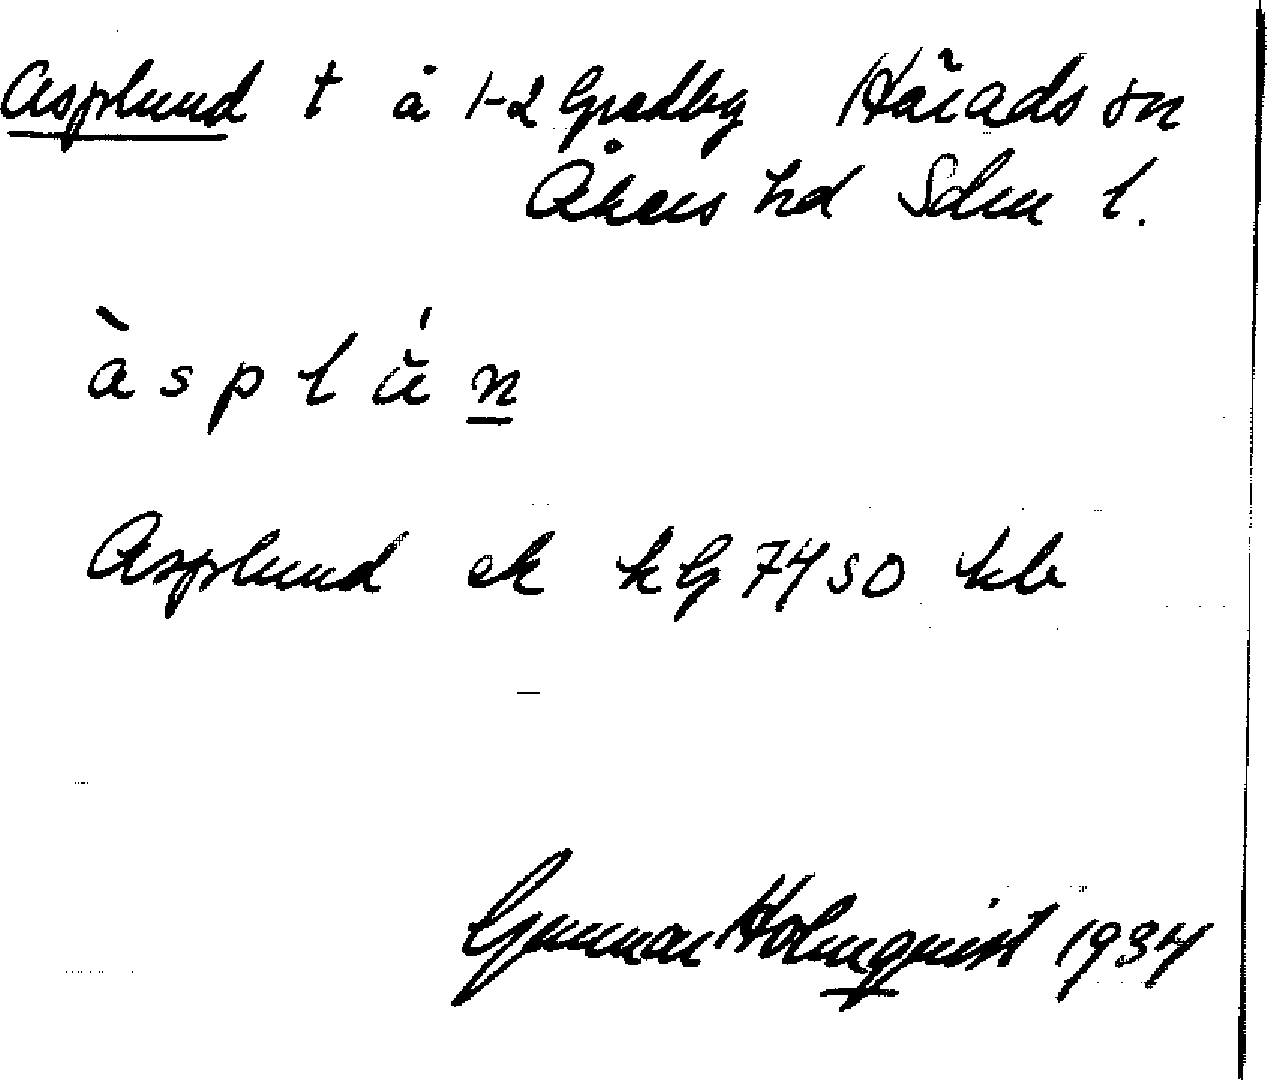 Asplund t å 1-2 Gredby Härads sn
Åkers hd Sdm l.
à s p l ú n
Asplund ek kG 7450 kb
Gunnar Holmquist 1934